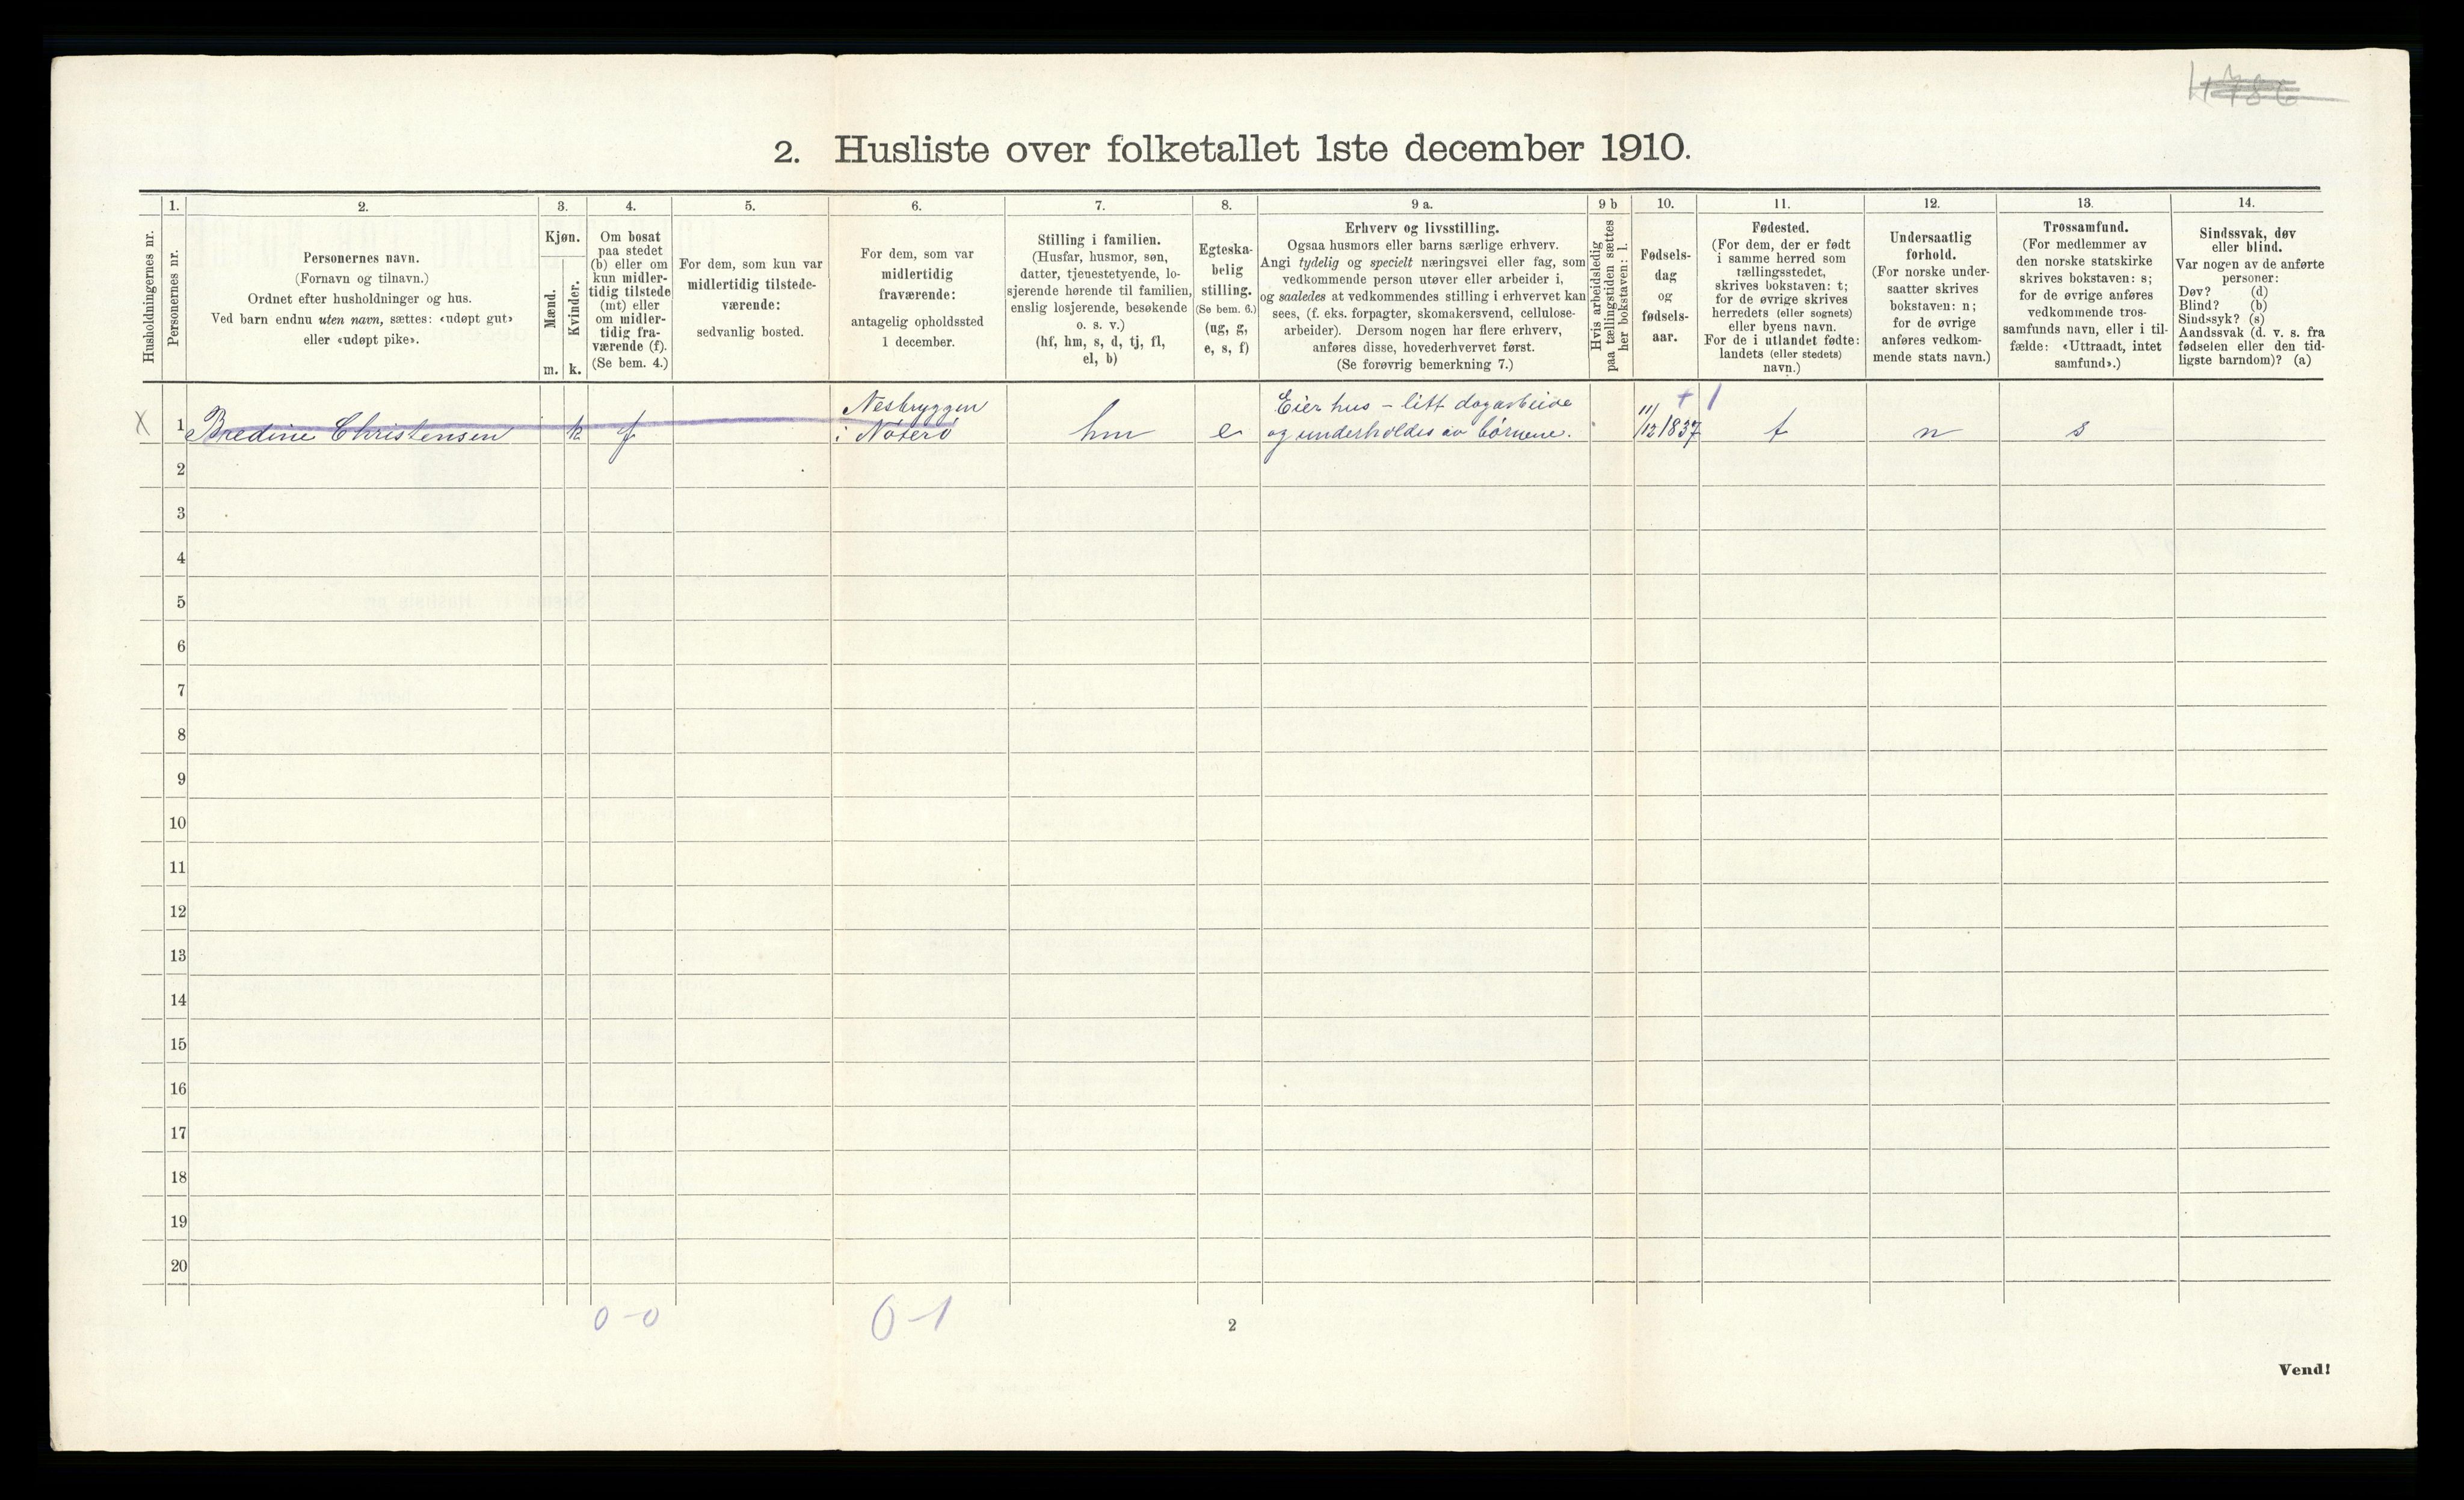 2. Husliste over folketallet 1ste december 1910.
Husholdningernes nr.
1.
Personernes nr.
2.
Personernes navn.
(Fornavn og tilnavn.)
Ordnet efter husholdninger og hus.
Ved barn endnu uten navn, sættes: «udøpt gut»
eller «udøpt pike».
3.
Kjøn.
Mænd.
Kvinder.
m. k.
4.
Om bosat
paa stedet
(b) eller om
kun midler-
tidig tilstede
(mt) eller
om midler-
tidig fra-
værende (f).
(Se bem. 4.)
5.
For dem, som kun var
midlertidig tilstede-
værende:
sedvanlig bosted.
6.
For dem, som var
midlertidig
fraværende:
antagelig opholdssted
1 december.
7.
Stilling i familien.
(Husfar, husmor, søn,
datter, tjenestetyende, lo-
sjerende hørende til familien,
enslig losjerende, besøkende
o. s. v.)
(hf, hm, s, d, tj, fl,
el, b)
8.
Egteska-
belig
stilling.
(Se bem. 6.)
(ug, g,
e, s, f)
9 a.
Erhverv og livsstilling.
Ogsaa husmors eller barns særlige erhverv.
Angi tydelig og specielt næringsvei eller fag, som
vedkommende person utøver eller arbeider i,
og saaledes at vedkommendes stilling i erhvervet kan
sees, (f. eks. forpagter, skomakersvend, cellulose-
arbeider). Dersom nogen har flere erhverv,
anføres disse, hovederhvervet først.
(Se forøvrig bemerkning 7.)
9 b
Hvis arbeidsledig
paa tællingstiden sættes
her bokstaven: l.
10.
Fødsels-
dag
og
fødsels-
aar.
11.
Fødested.
(For dem, der er født
i samme herred som
tællingsstedet,
skrives bokstaven: t;
for de øvrige skrives
herredets (eller sognets)
eller byens navn.
For de i utlandet fødte:
landets (eller stedets)
navn.)
12.
Undersaatlig
forhold.
(For norske under-
saatter skrives
bokstaven: n;
for de øvrige
anføres vedkom-
mende stats navn.)
13.
Trossamfund.
(For medlemmer av
den norske statskirke
skrives bokstaven: s;
for de øvrige anføres
vedkommende tros-
samfunds navn, eller i til-
fælde: «Uttraadt, intet
samfund».)
14.
Sindssvak, døv
eller blind.
Var nogen av de anførte
personer:
Døv? (d)
Blind? (b)
Sindssyk? (s)
Aandssvak (d. v. s. fra
fødselen eller den tid-
ligste barndom)? (a)
Nesbryggen
Eier hus – litt dagarbeide
X 1 Bredine Christensen k f i Nøterø hm e og underholdes av børnene. 11/12 1837 t n s
2
3
4
5
6
7
8
9
10
11
12
13
14
15
16
17
18
19
20
0-0
0-1
2
Vend!